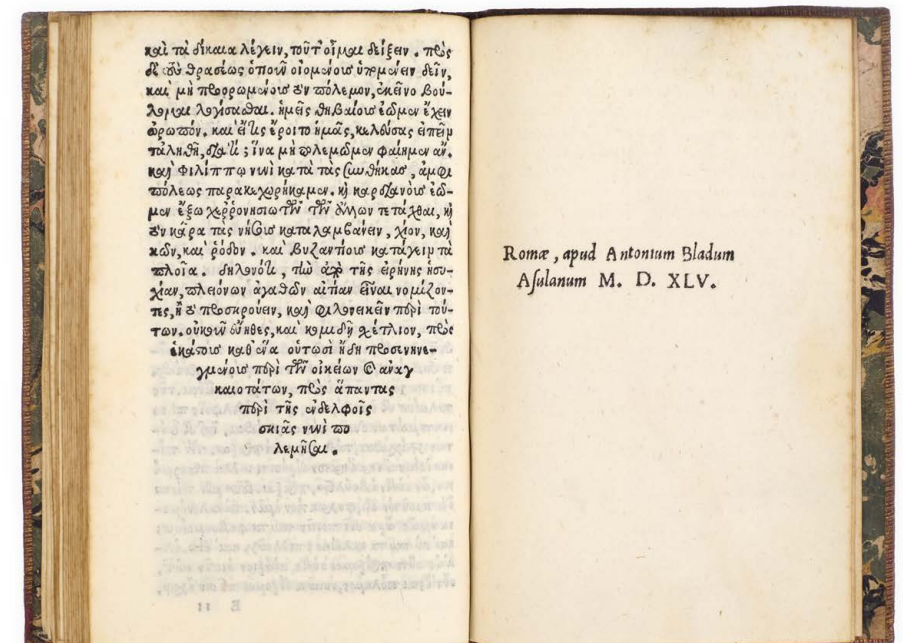 καὶ τὰ δίκαια λέγειν, τοῦτ' οἶμαι δείξειν. πρὸς
δὲ τοὺς θρασέως ὁτιοῦν οἰομένους ὑπομένειν δεῖν,
καὶ μὴ προορωμένους τὸν πόλεμον, ἐκεῖνο βού-
λομαι λογίσασθαι. ἡμεῖς θηβαίους ἐῶμεν ἔχειν
ὠρωπόν. καὶ εἴ τις ἔροιτο ἡμᾶς, κελεύσας εἰπεῖν
τἀληθῆ, διὰ τί; ἵνα μὴ πολεμῶμεν φαίημεν ἄν.
καὶ Φιλίππῳ νυνὶ κατὰ τὰς συνθήκας, ἀμφι
πόλεως παρακεχωρήκαμεν. καὶ καρδιανοὺς ἐῶ-
μεν ἔξω χερρονησιωτῶν τῶν ἄλλων τετάχθαι, καὶ
τὸν κᾶρα τὰς νήσους καταλαμβάνειν, χίον, καὶ
κῶν, καὶ ῥόδον. καὶ Βυζαντίους κατάγειν τὰ
πλοῖα. δηλονότι, τὴν ἀπὸ τῆς εἰρήνης ἡσυ-
χίαν, πλειόνων ἀγαθῶν αἰτίαν εἶναι νομίζον-
τες, ἢ τὸ προσκρούειν, καὶ φιλονεικεῖν περὶ τού-
των. οὐκοῦν εὔηθες, καὶ κομιδῆ σχέτλιον, πρὸς
ἑκάστους καθ' ἕνα οὑτωσὶ ἤδη προσενηνε-
γμένους περὶ τῶν οἰκείων καὶ ἀναγ
καιοτάτων, πρὸς ἅπαντας
περὶ τῆς ἐν δελφοῖς
σκιᾶς νυνὶ πο
λεμῆσαι.
Romæ, apud Antonium Bladum
Asulanum M. D. XLV.